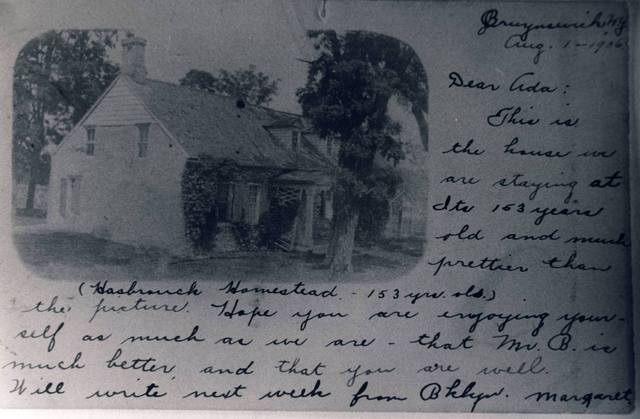 Bruynswick, N.Y.
Aug. 1 - 1906
Dear Ada:
This is
the house we
are staying at
Its 153 years
old and much
prettier than
(Hasbrouck Homestead - 153 yrs. old.)
the picture. Hope you are enjoying your-
self as much as we are - that Mr. B. is
much better, and that you are well.
Will write next week from Bklyn. Margaret